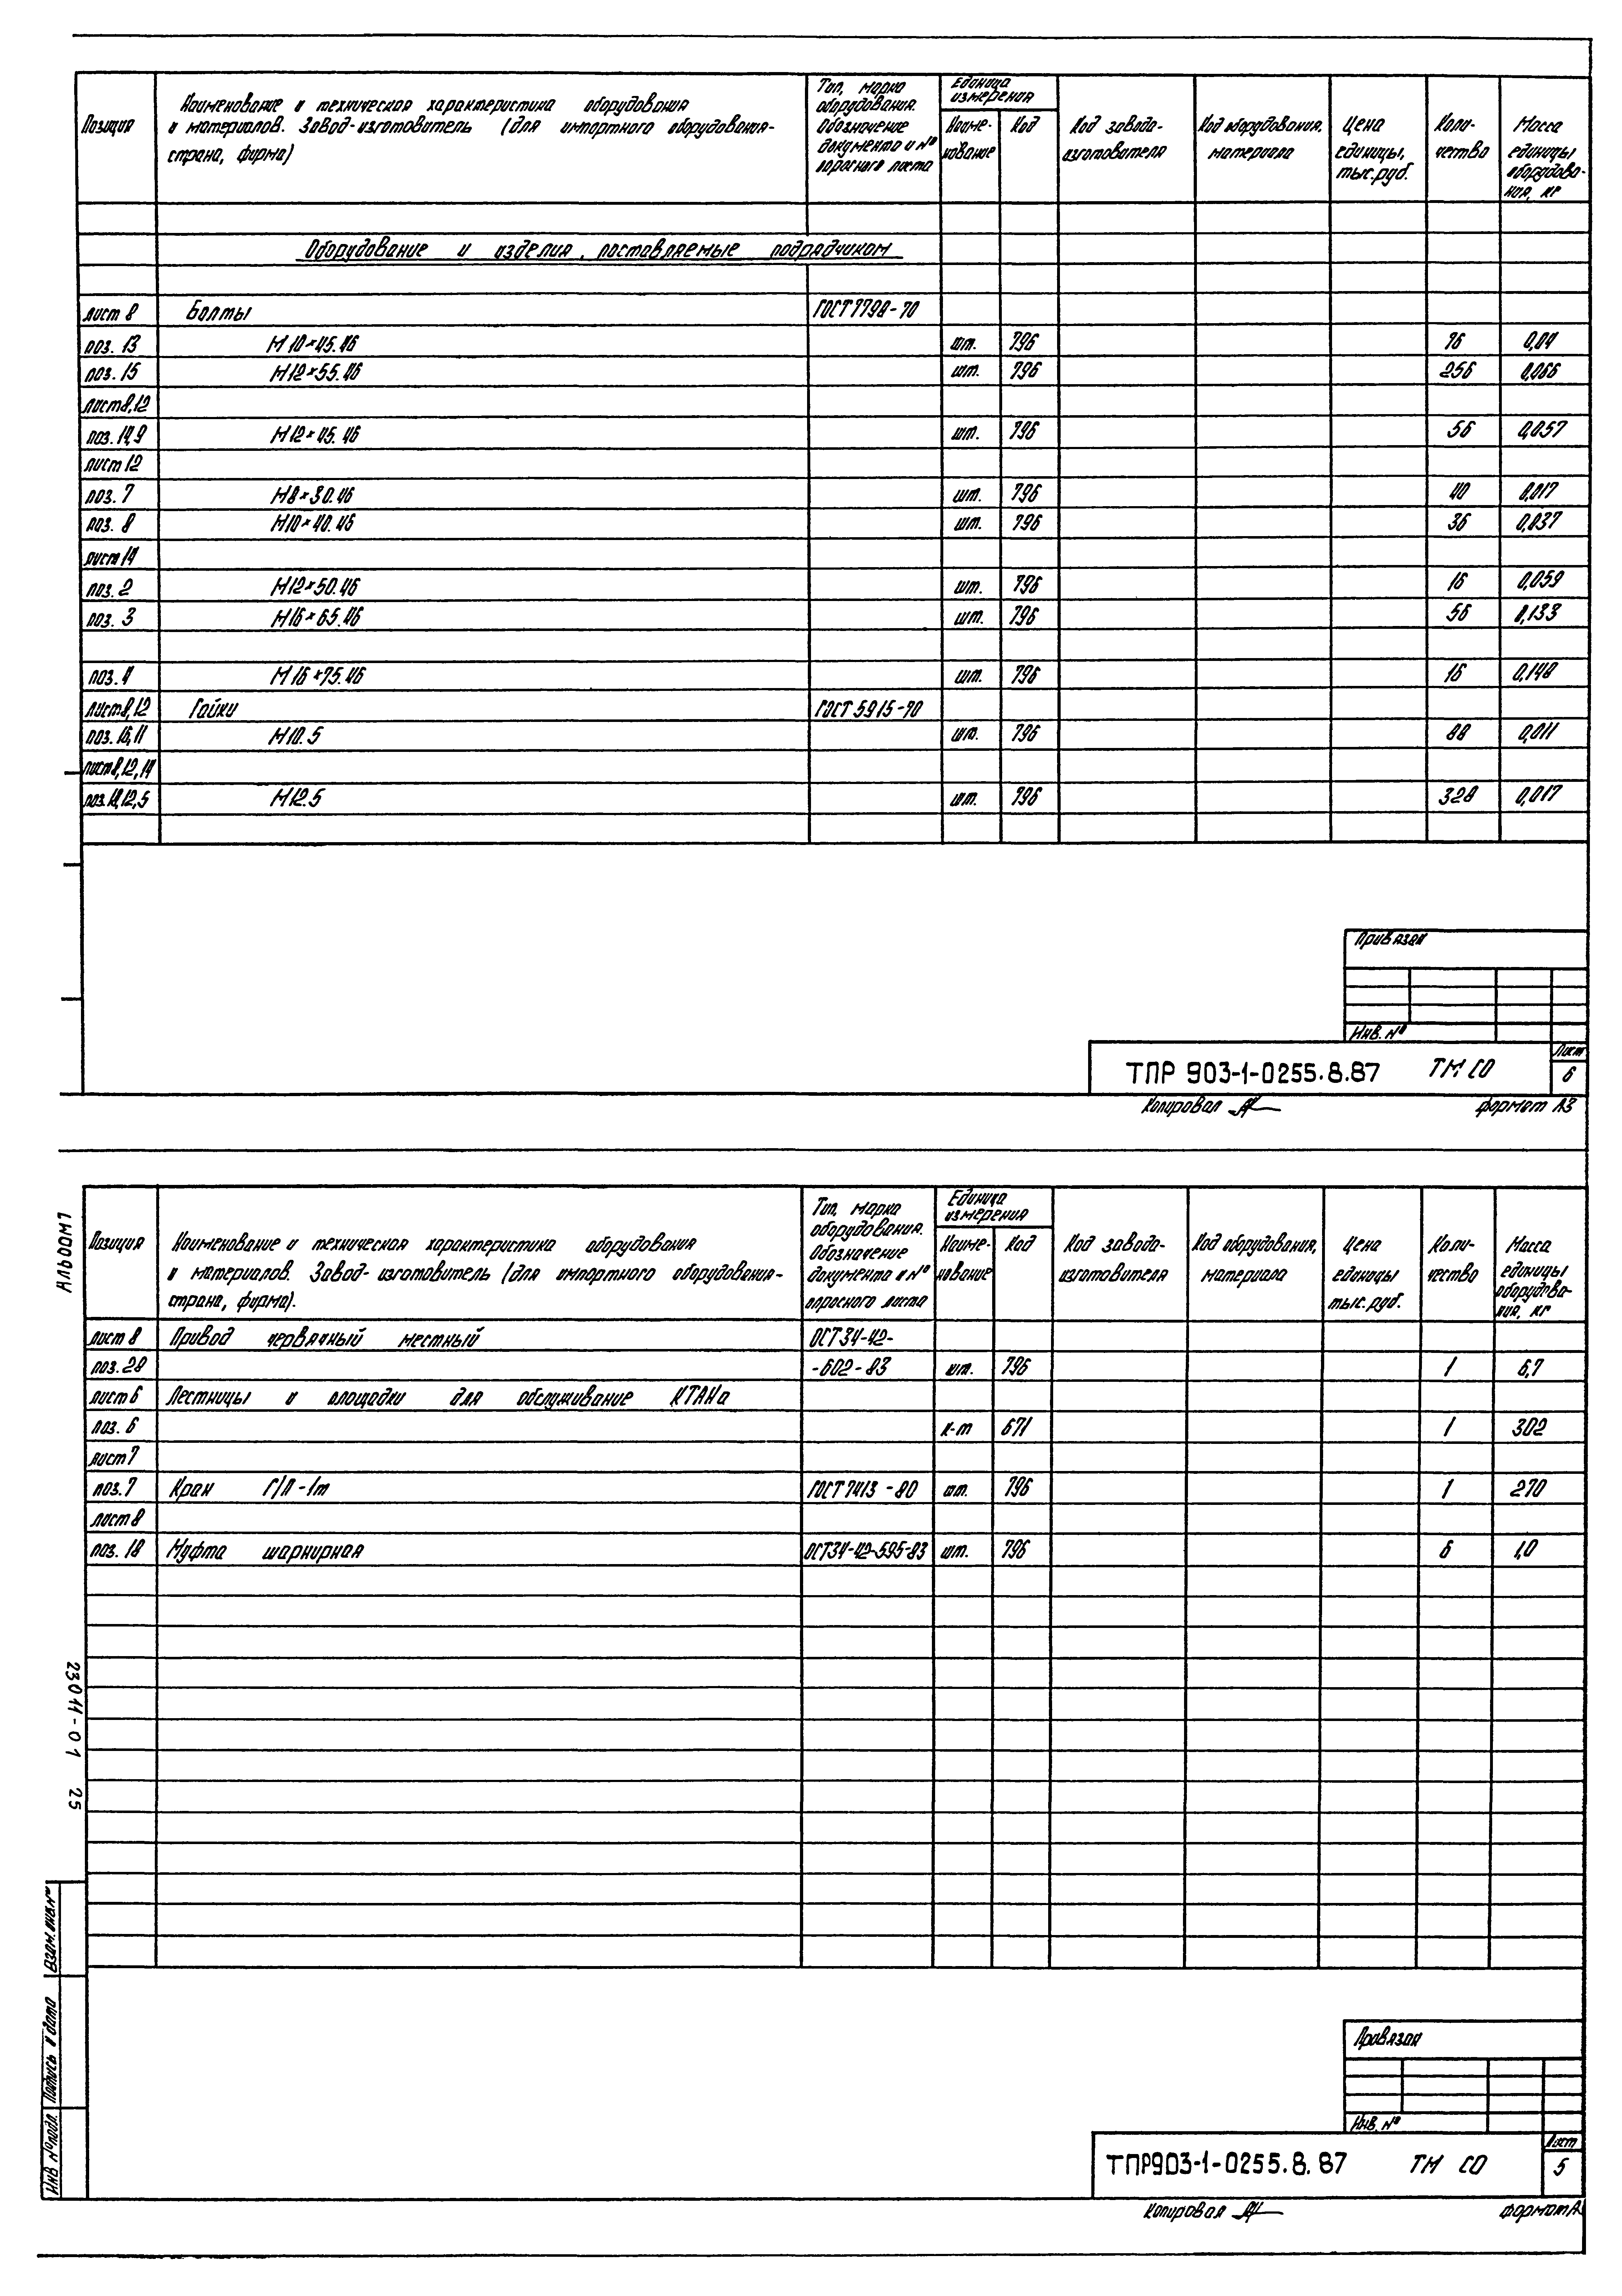 Позиция
Наименование и техническая характеристика оборудования
и материалов. Завод-изготовитель (для импортного оборудования-
страна, фирма)
Тип, марка
оборудования.
Обозначение
документа и №
опросного листа
Единица
измерения
Наиме-
нование
Код
Код завода-
изготовителя
Код оборудования,
материала
Цена
единицы,
тыс.руб.
Коли-
чество
Масса
единицы
оборудова-
ния, кг
Оборудование и изделия, поставляемые подрядчиком
лист 8 Болты ГОСТ 7798-70
поз. 13 М10×45.46 шт. 796 76 0,04
поз. 15 М12×55.46 шт. 796 256 0,066
лист 8,12
поз. 14,9 М12×45.46 шт. 796 56 0,057
лист 12
поз. 7 М8×30.46 шт. 796 40 0,017
поз. 8 М10×40.46 шт. 796 36 0,037
лист 14
поз. 2 М12×50.46 шт. 796 16 0,059
поз. 3 М16×65.46 шт. 796 56 0,133
поз. 4 М16×75.46 шт. 796 16 0,148
лист 8,12 Гайки ГОСТ 5915-70
поз. 16,11 М10.5 шт. 796 88 0,011
лист 8,12,14
поз. 12,5 М12.5 шт. 796 328 0,017
Привязан
Инв. №
ТПР 903-1-0255.8.87 ТМ СО
Лист
6
Копировал
формат А3
Альбом 1
Позиция
Наименование и техническая характеристика оборудования
и материалов. Завод-изготовитель (для импортного оборудования-
страна, фирма).
Тип, марка
оборудования.
Обозначение
документа и №
опросного листа
Единица
измерения
Наиме-
нование
Код
Код завода-
изготовителя
Код оборудования,
материала
Цена
единицы
тыс.руб.
Коли-
чество
Масса
единицы
оборудова-
ния, кг
лист 8 Привод червячный местный ОСТ 34-42-
поз. 28 -602-83 шт. 796 1 6,7
лист 6 Лестницы и площадки для обслуживание КТАНа
поз. 6 к-т 671 1 302
лист 7
поз. 7 Кран Г/П-1т ГОСТ 7413-80 шт. 796 1 270
лист 8
поз. 18 Муфта шарнирная ОСТ34-42-595-83 шт. 796 6 1,0
23011-01 25
Взам. инв. №
Подпись и дата
Инв № подл.
Привязан
Инв. №
ТПР903-1-0255.8.87 ТМ СО
Лист
5
Копировал
формат А